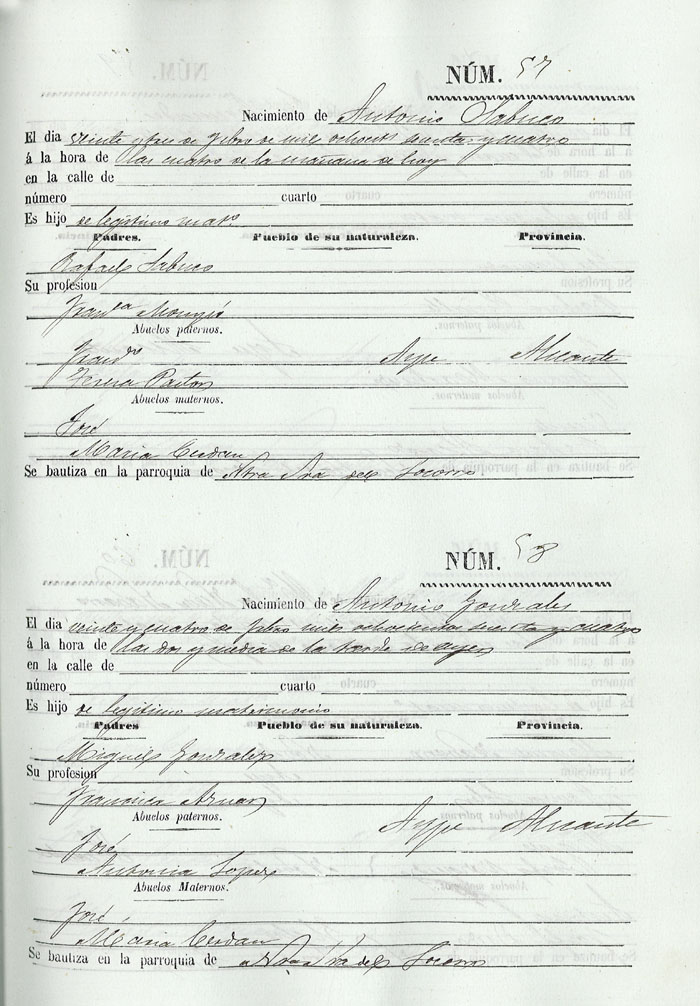 NÚM. 57
Nacimiento de Antonio Sabuco
El dia veinte y tres de Febro de mil ochocts sesenta y cuatro
á la hora de las cuatro de la mañana de hoy
en la calle de
número cuarto
Es hijo de legitimo mato
Padres. Pueblo de su naturaleza. Provincia.
Rafael Sabuco
Su profesion
Franca
Abuelos paternos.
Franco Aspe Alicante
Teresa Pastor
Abuelos maternos.
José
Maria Cerdan
Se bautiza en la parroquia de Ntra Sra del Socorro.
NÚM. 58
Nacimiento de Antonio Gonzalez
El dia veinte y cuatro de Febro mil ochocientos sesenta y cuatro
á la hora de las dos y media de la tarde de ayer
en la calle de
número cuarto
Es hijo de legitimo matrimonio
Padres Pueblo de su naturaleza. Provincia.
Miguel Gonzalez
Su profesion
Francisca Aznar
Abuelos paternos. Aspe Alicante
José
Antonia Lopez
Abuelos Maternos.
José
Maria Cerdan
Se bautiza en la parroquia de Ntra Sra del Socorro